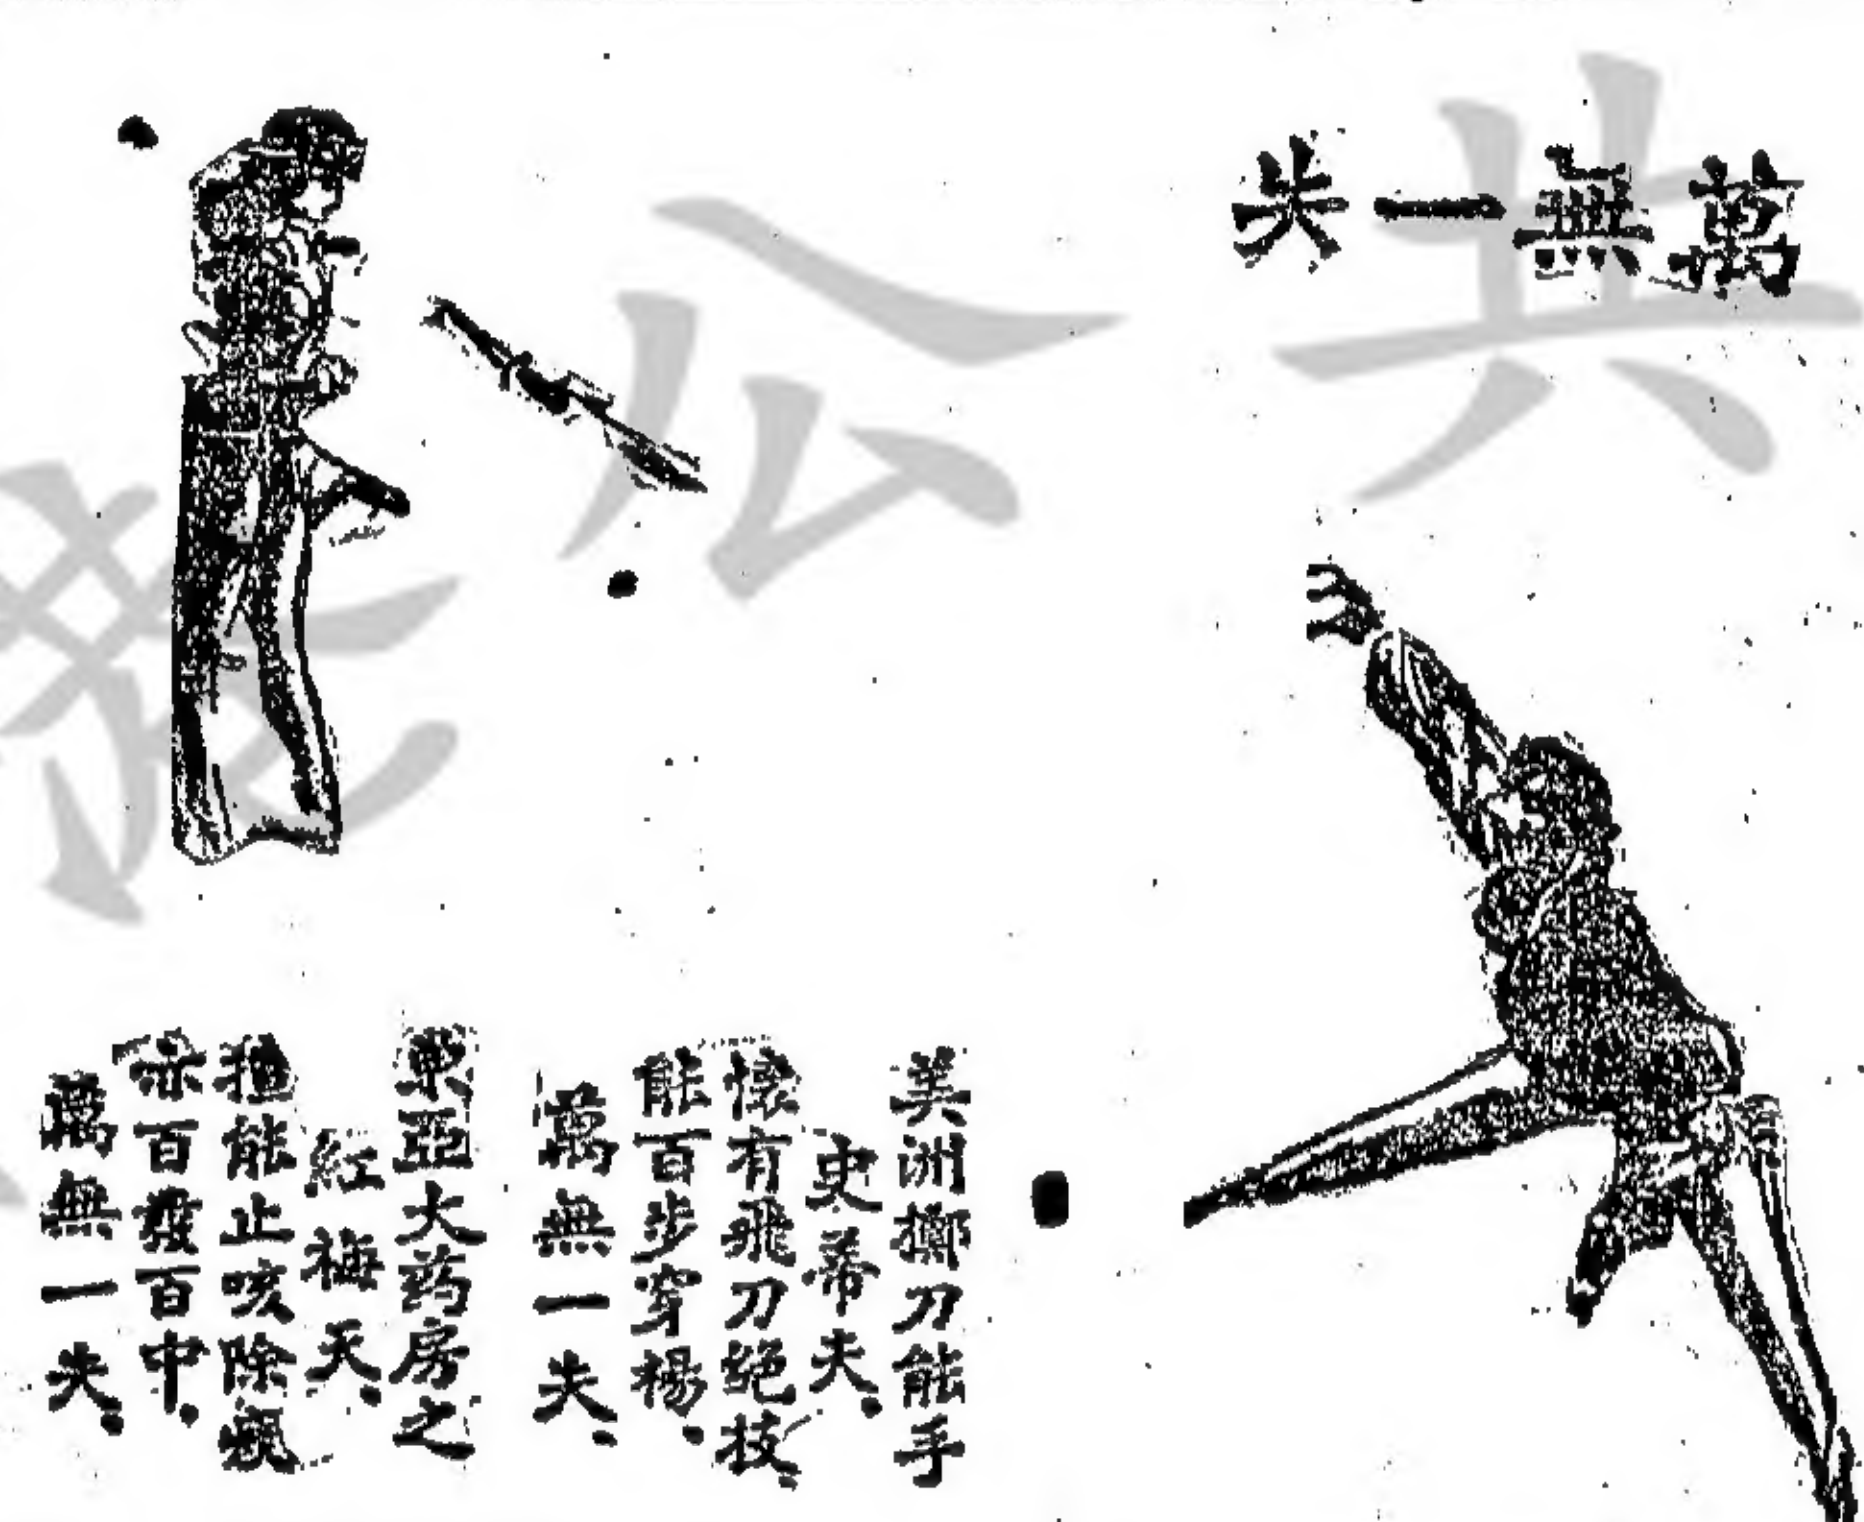 萬無一失
美洲擲刀能手
史蒂夫、
懷有飛刀絕技、
能百步穿楊、
萬無一失、
東亞大药房之
紅梅天、
能止咳除痰
亦百發百中、
萬無一失、
公共